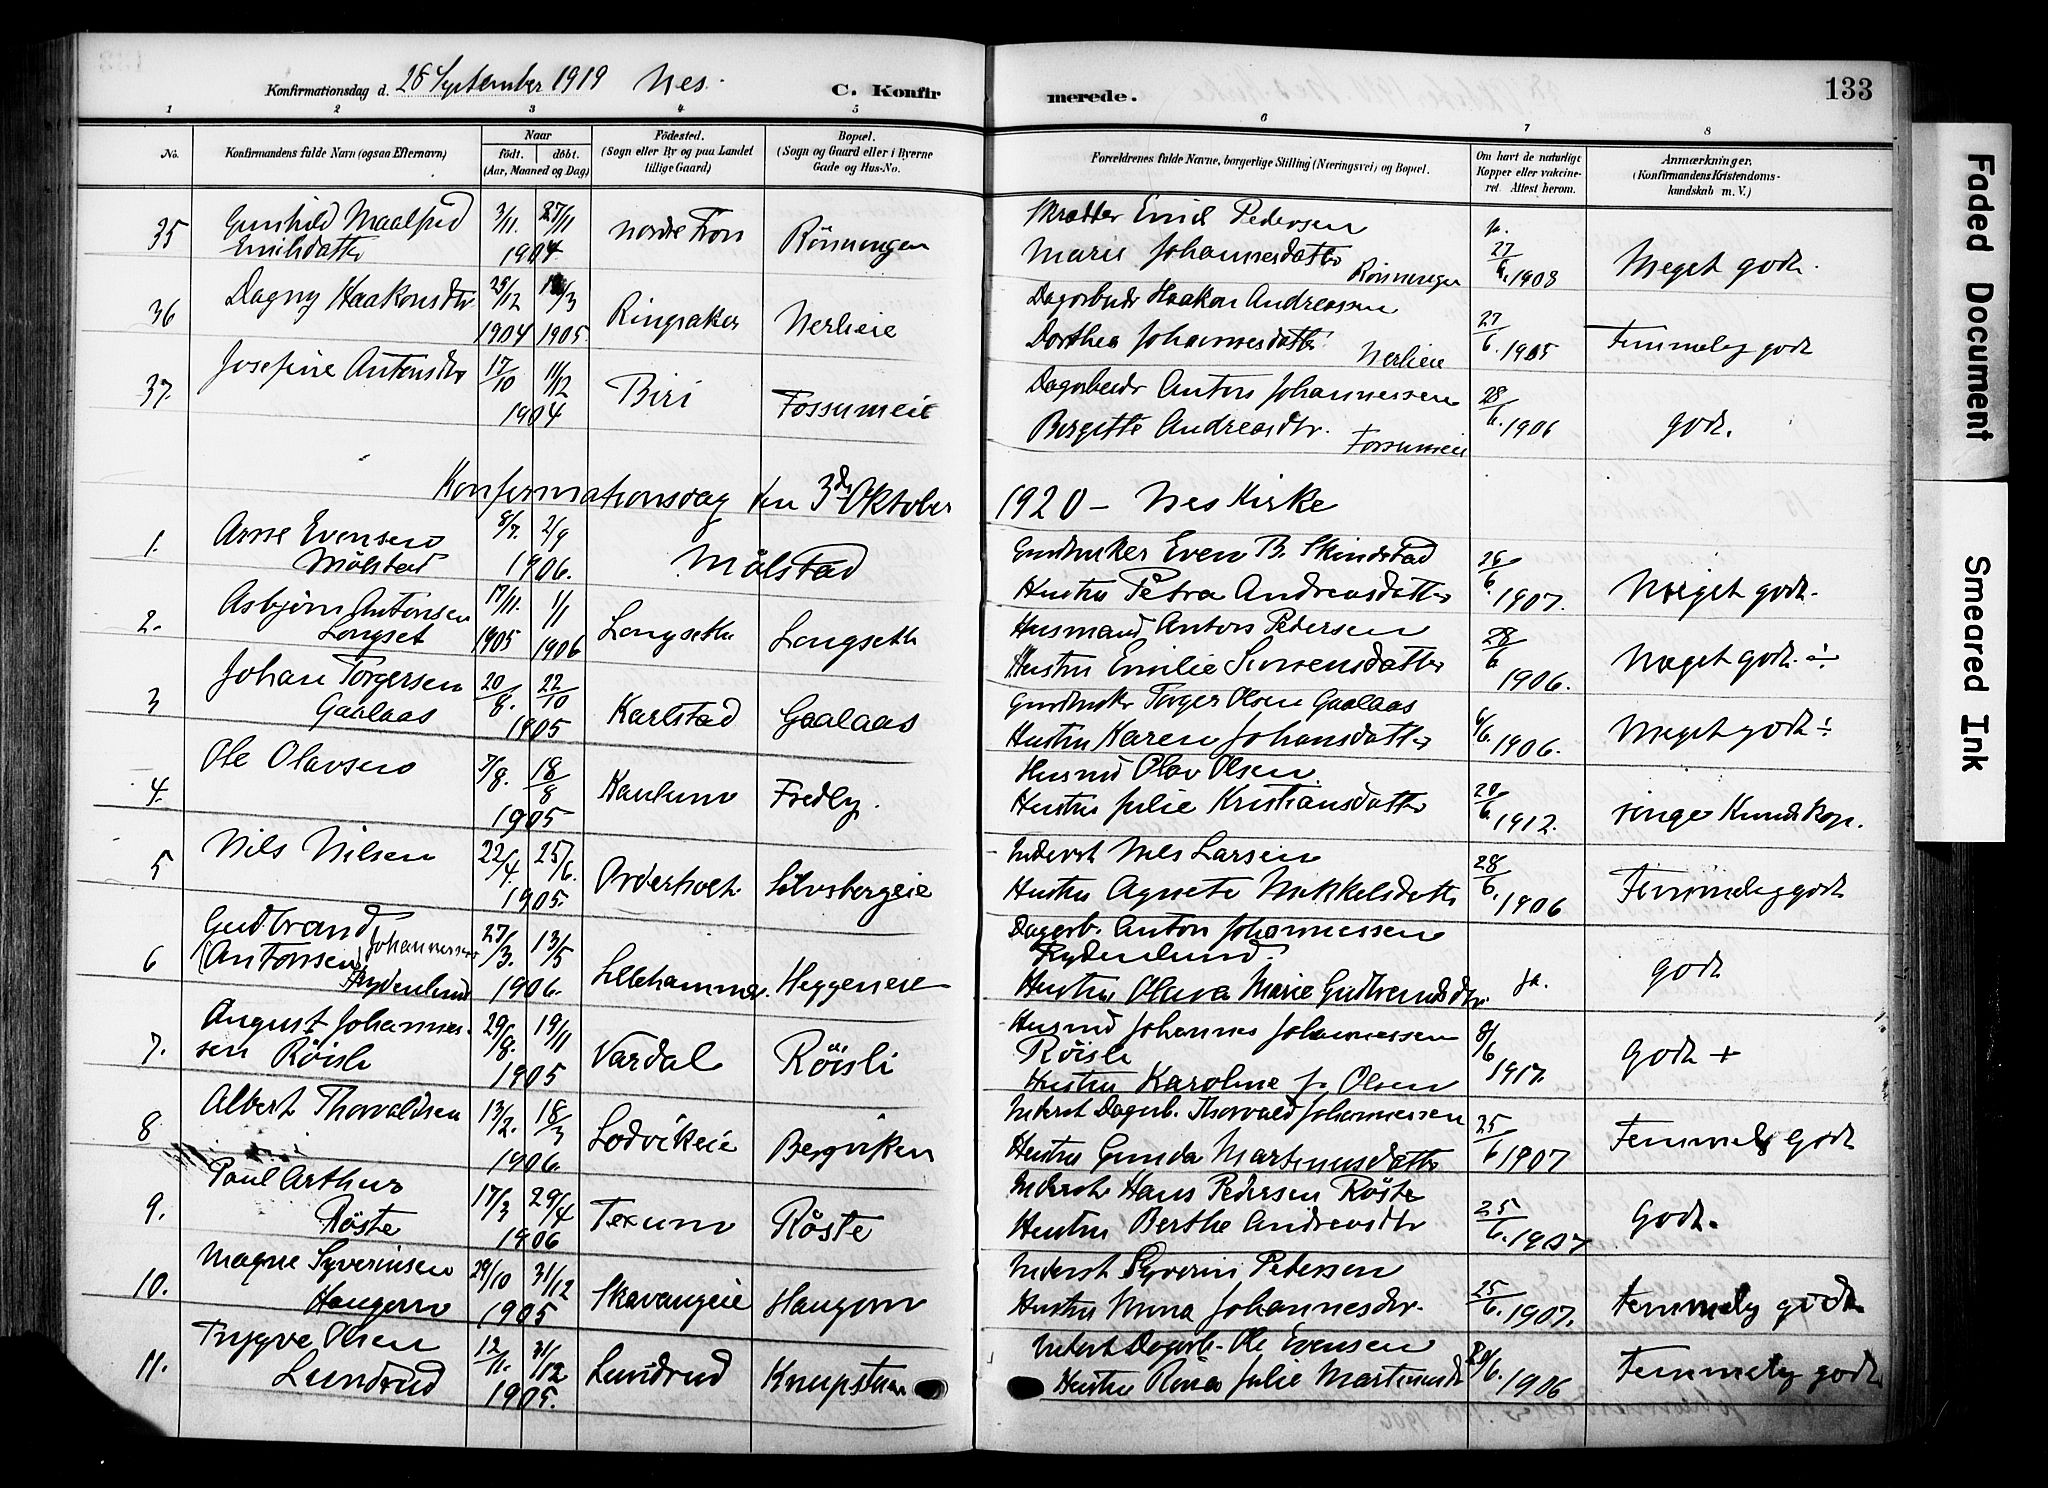 Konfirmationsdag d. 28 September 1919 Nes. C. Konfirmerede. 133
1 2 3 4 5 6 7 8
No. Konfirmandens fulde Navn (ogsaa Efternavn) Naar født. døbt. (Aar, Maaned og Dag) Fødested. (Sogn eller By og paa Landet tillige Gaard) Bopæl. (Sogn og Gaard eller i Byerne Gade og Hus-No. Forældrenes fulde Navne, borgerlige Stilling (Næringsvei) og Bopæl. Om havt de naturlige Kopper eller vaccineret. Attest herom. Anmærkninger. (Konfirmandens Kristendomskundskab m. V.)
35 Gunhild Maalfrid Emilsdatter 3/11. 27/11 1904 Nordre Fron Rönningen Emil Pedersen
Marie Johannesdatter Rönningen 27/6. 1908 Meget godt.
36 Dagny Haakonsdtr 29/12 1904 /3 1905. Ringsaker Nerlieie Dagarbeider Haakon Andreassen
Dorthea Johannesdatter Nerlieie 27/6. 1905 Temmelig godt
37. Josefine Antonsdtr 17/10 11/12 1904 Biri Fossumeie Dagarbeider Anton Johannessen
Birgitte Andreasdtr. Fossumeie 28/6. 1906 godt.
Konfirmationsdag den 3de Oktober 1920 – Nes Kirke
1. Arne Evensen Mølstad 8/7. 2/9 1906. Mølstad Gaardbruker Even B. Skindstad
Hustru Petra Andreasdatter 26/6 1907. Meget godt.
2. Asbjørn Antonsen Longset 17/11. 1905 1/1 1906 Longseth Longseth Husmand Anton Pedersen
Hustru Emilie Simensdatter 28/6 1906. Meget godt. ÷
3 Johan Torgersen Gaalaas 20/8. 22/10 1905 Karlstad Gaalaas Gaardbruker Torger Olsen Gaalaas
Hustru Karen Johansdatter 6/6. 1906. Meget godt ÷
4. Ole Olavsen 7/8. 18/8 1905 Kaulum Fredly. Husmd Olav Olsen.
Hustru Julie Kristiansdatter 20/6. 1912. ringe Kundskap.
5 Nils Nilsen 22/4 25/6. 1905. Overholt Sølvsbergeie Inderst Nils Larsen
Hustru Agnete Mikkelsdatter 28/6. 1906 Temmelig godt
6 Gudbrand (Antonsen) Johannessen Frydenlund 27/3. 13/5 1906. Lillehammer. Heggeneie Dagarb. Anton Johannessen
Frydenlund.
Hustru Olava Marie Gudbrandsdtr. ja. godt
7. August Johannessen Röisli 29/8. 19/11 1905 Vardal Röisli Husmd Johannes Johannessen
Röisli
Hustru Karoline f. Olsen 8/6 1917. Godt +
8 Albert Thorvaldsen 13/2. 18/3 1906. Lodvikeie Bergviken Inderst Dagarb. Thorvald Johannessen
Hustru Gunda Martinusdatter 25/6 1907 Temmelig godt
9. Paul Arthur Röste 17/3 29/4 1906 Texum Röste Inderst Hans Pedersen Röste
Hustru Berthe Andreasdtr 25/6. 1907 Godt.
10. Magne Syverinsen Haugom 29/10 31/12 1905 Skavangeie Haugom Inderst Syverin Petersen
Hustru Mina Johannesdtr. 25/6. 1907. Temmelig godt.
11. Trygve Olsen Lundrud 12/11. 31/12 1905. Lundrud Knupstuen Inderst Dagarb. Ole Evensen
Hustru Rina Julie Martinusdtr /6. 1906 Temmelig godt
Faded Document
Smeared Ink